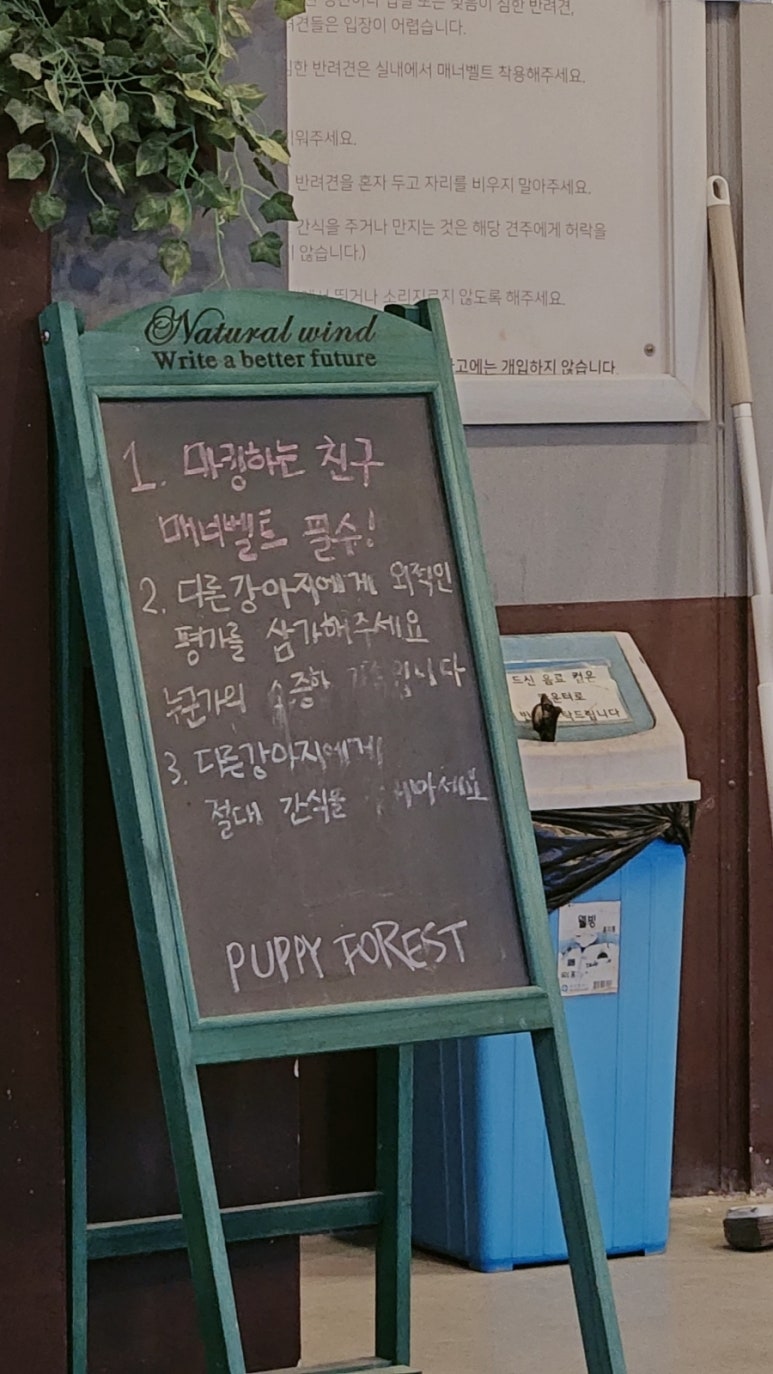 심한 반려견,
견들은 입장이 어렵습니다.
심한 반려견은 실내에서 매너벨트 착용해주세요.
워주세요.
반려견을 혼자 두고 자리를 비우지 말아주세요.
간식을 주거나 만지는 것은 해당 견주에게 허락을
않습니다.)
뛰거나 소리지르지 않도록 해주세요.
개입하지 않습니다.
Natural wind
Write a better future
1. 마킹하는 친구
매너벨트 필수!
2. 다른강아지에게 외적인
평가를 삼가해주세요
누군가의 소중한 가족입니다
3. 다른강아지에게
절대 간식을 마세요
PUPPY FOREST
드신 음료 컵은
탁드립니다
웰빙